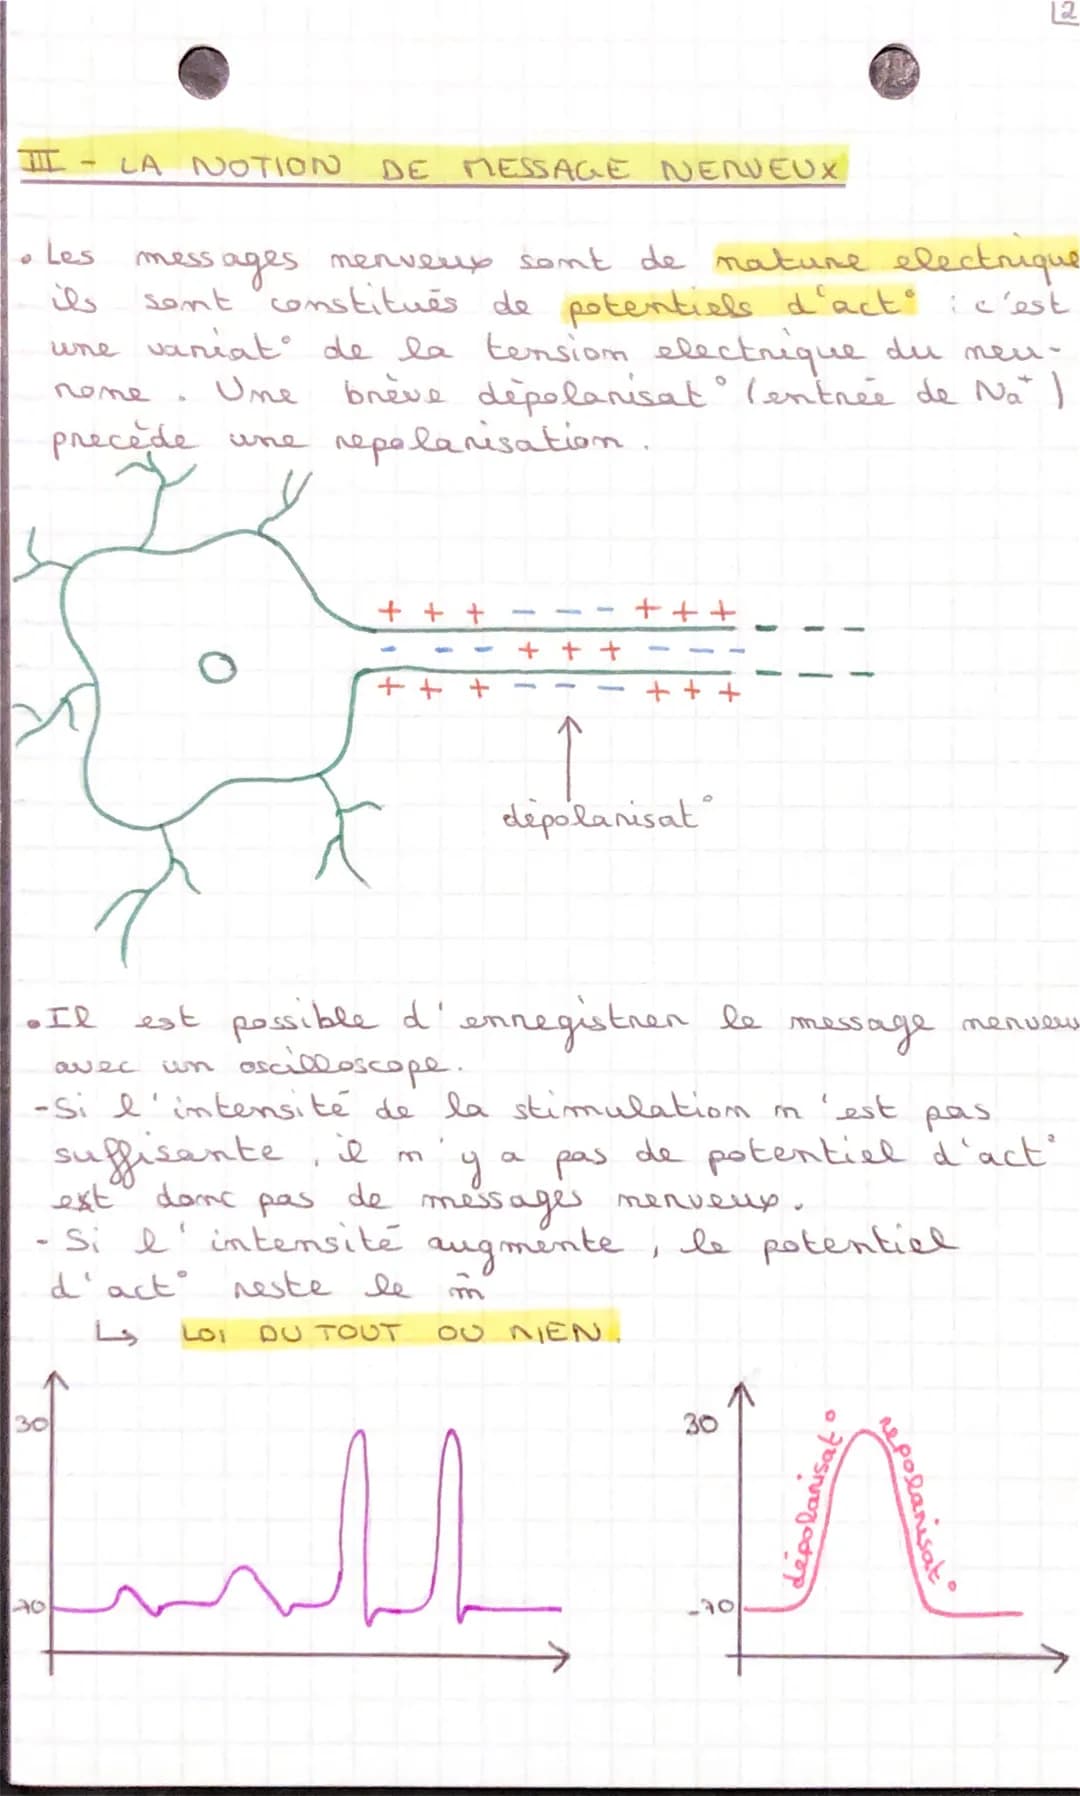 2
III - LA NOTION DE MESSAGE NERVEUX
• Les messages nerveux sont de nature electrique
ils sont constitués de potentiels d'act° : c'est
une variat° de la tension electrique du neu-
rone. Une brève dépolarisat° (entrée de Na+)
precède une repolarisation.
+ + + - - - + + +
- - - + + + - - -
+ + + - - - + + +
dépolarisat°
• Il est possible d'enregistrer le message nerveux
avec un oscilloscope.
- Si l'intensité de la stimulation n'est pas
suffisante, il n'y a pas de potentiel d'act°
est donc pas de messages nerveux.
- Si l'intensité augmente, le potentiel
d'act° reste le m̃
↳ LOI DU TOUT OU RIEN.
30
-70
30
-70
dépolarisat°
repolarisat°